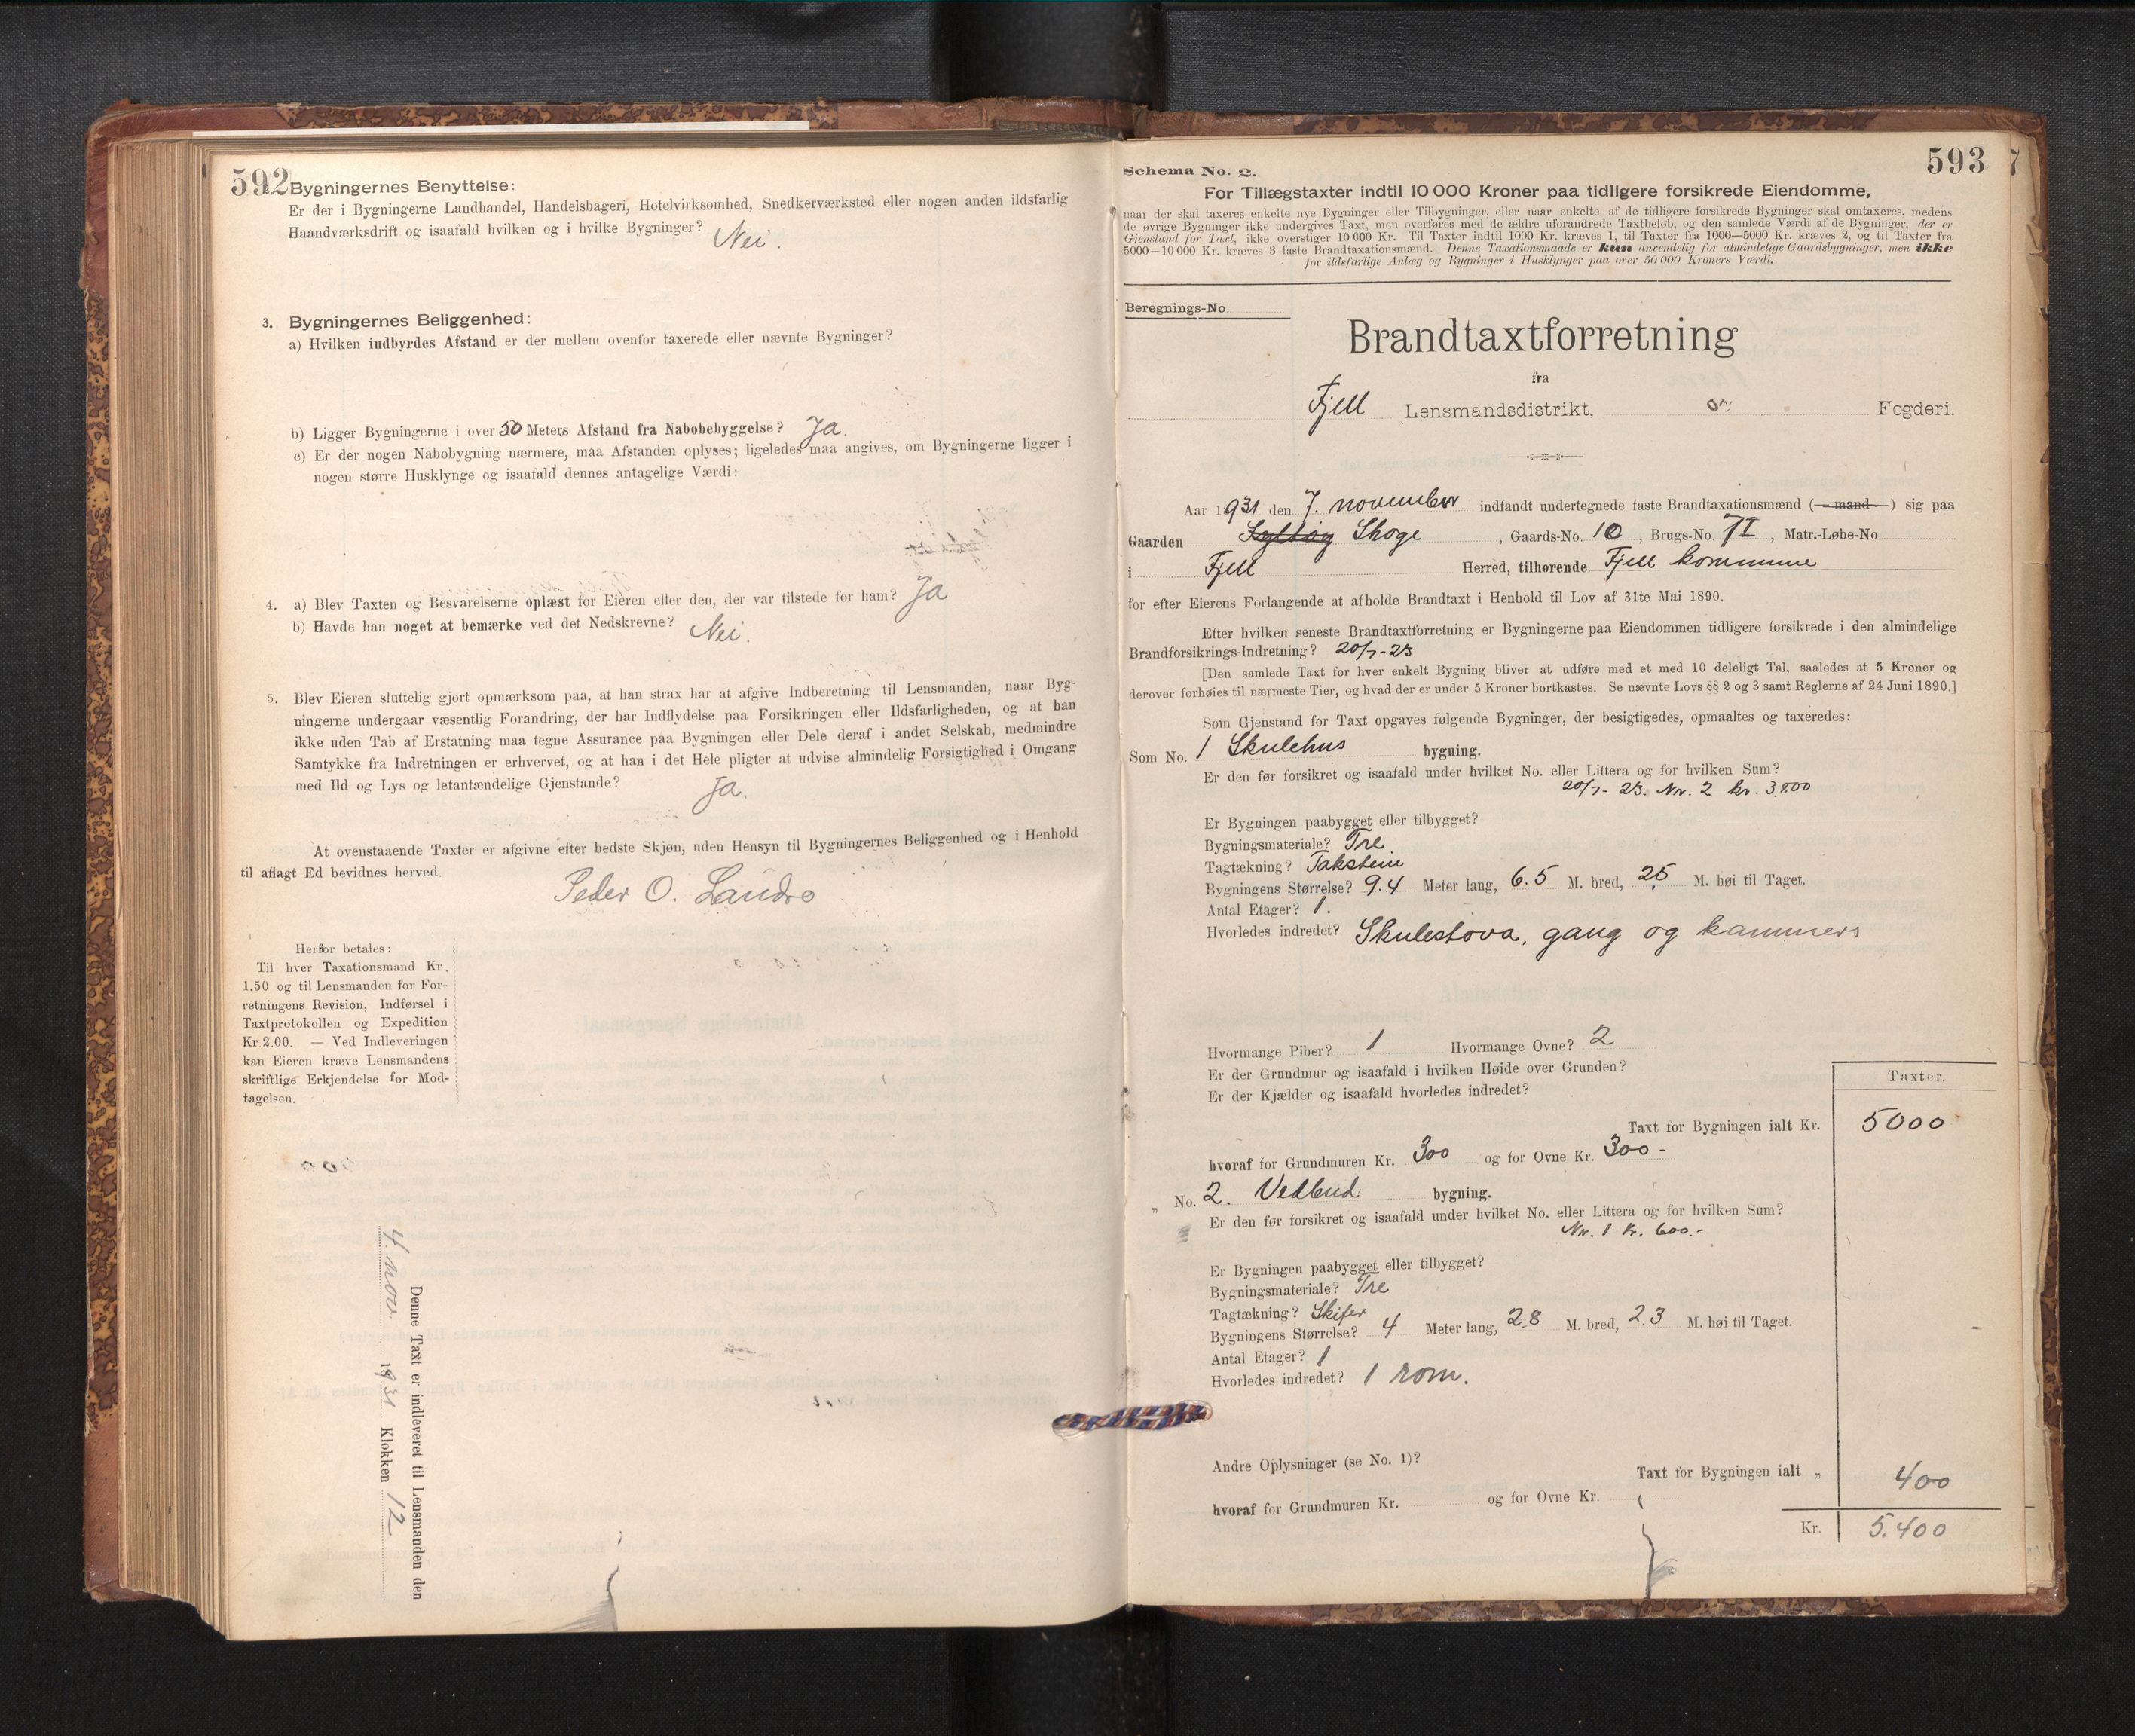 592
Bygningernes Benyttelse:
Er der i Bygningerne Landhandel, Handelsbageri, Hotelvirksomhed, Snedkerværksted eller nogen anden ildsfarlig
Haandværksdrift og isaafald hvilken og i hvilke Bygninger? Nei.
3. Bygningernes Beliggenhed:
a) Hvilken indbyrdes Afstand er der mellem ovenfor taxerede eller nævnte Bygninger?
b) Ligger Bygningerne i over 50 Meters Afstand fra Nabobebyggelse? Ja.
c) Er der nogen Nabobygning nærmere, maa Afstanden oplyses; ligeledes maa angives, om Bygningerne ligger i
nogen større Husklynge og isaafald dennes antagelige Værdi:
4. a) Blev Taxten og Besvarelserne oplæst for Eieren eller den, der var tilstede for ham? Ja
b) Havde han noget at bemærke ved det Nedskrevne? Nei.
5. Blev Eieren sluttelig gjort opmærksom paa, at han strax har at afgive Indberetning til Lensmanden, naar Byg-
ningerne undergaar væsentlig Forandring, der har Indflydelse paa Forsikringen eller Ildsfarligheden, og at han
ikke uden Tab af Erstatning maa tegne Assurance paa Bygningen eller Dele deraf i andet Selskab, medmindre
Samtykke fra Indretningen er erhvervet, og at han i det Hele pligter at udvise almindelig Forsigtighed i Omgang
med Ild og Lys og letantændelige Gjenstande? Ja.
At ovenstaaende Taxter er afgivne efter bedste Skjøn, uden Hensyn til Bygningernes Beliggenhed og i Henhold
til aflagt Ed bevidnes herved.
Peder O. Landro
Herfor betales:
Til hver Taxationsmand Kr.
1.50 og til Lensmanden for For-
retningens Revision, Indførsel i
Taxtprotokollen og Expedition
Kr. 2.00. — Ved Indleveringen
kan Eieren kræve Lensmandens
skriftlige Erkjendelse for Mod-
tagelsen.
Denne Taxt er indleveret til Lensmanden den
4. nov. 1931 Klokken 12
593
Schema No. 2.
For Tillægstaxter indtil 10 000 Kroner paa tidligere forsikrede Eiendomme,
naar der skal taxeres enkelte nye Bygninger eller Tilbygninger, eller naar enkelte af de tidligere forsikrede Bygninger skal omtaxeres, medens
de øvrige Bygninger ikke undergives Taxt, men overføres med de ældre uforandrede Taxtbeløb, og den samlede Værdi af de Bygninger, der er
Gjenstand for Taxt, ikke overstiger 10 000 Kr. Til Taxter indtil 1000 Kr. kræves 1, til Taxter fra 1000—5000 Kr. kræves 2, og til Taxter fra
5000—10 000 Kr. kræves 3 faste Brandtaxationsmænd. Denne Taxationsmaade er kun anvendelig for almindelige Gaardsbygninger, men ikke
for ildsfarlige Anlæg og Bygninger i Husklynger paa over 50 000 Kroners Værdi.
Beregnings-No.
Brandtaxtforretning
fra
Fjell Lensmandsdistrikt, Fogderi.
Aar 1931 den 7. november indfandt undertegnede faste Brandtaxationsmænd (mand) sig paa
Gaarden Skoge, Gaards-No. 10, Brugs-No. 71, Matr.-Løbe-No.
i Fjell Herred, tilhørende Fjell kommune
for efter Eierens Forlangende at afholde Brandtaxt i Henhold til Lov af 31te Mai 1890.
Efter hvilken seneste Brandtaxtforretning er Bygningerne paa Eiendommen tidligere forsikrede i den almindelige
Brandforsikrings-Indretning? 20/7-23
[Den samlede Taxt for hver enkelt Bygning bliver at udføre med et med 10 deleligt Tal, saaledes at 5 Kroner og
derover forhøies til nærmeste Tier, og hvad der er under 5 Kroner bortkastes. Se nævnte Lovs §§ 2 og 3 samt Reglerne af 24 Juni 1890.]
Som Gjenstand for Taxt opgaves følgende Bygninger, der besigtigedes, opmaaltes og taxeredes:
Som No. 1 Skulehus bygning.
Er den før forsikret og isaafald under hvilket No. eller Littera og for hvilken Sum?
20/7-23. Nr. 2 kr. 3.800
Er Bygningen paabygget eller tilbygget?
Bygningsmateriale? Tre
Tagtækning? Takstein
Bygningens Størrelse? 9.4 Meter lang, 6.5 M. bred, 2.5 M. høi til Taget.
Antal Etager? 1.
Hvorledes indredet? Skulestova, gang og kammers
Hvormange Piber? 1 Hvormange Ovne? 2
Er der Grundmur og isaafald i hvilken Høide over Grunden?
Er der Kjælder og isaafald hvorledes indredet?
Taxter.
Taxt for Bygningen ialt Kr. 5000
hvoraf for Grundmuren Kr. 300 og for Ovne Kr. 300 -
„ No. 2. Vedbud bygning.
Er den før forsikret og isaafald under hvilket No. eller Littera og for hvilken Sum?
Nr. 1 Kr. 600.-
Er Bygningen paabygget eller tilbygget?
Bygningsmateriale? Tre
Tagtækning? Skifer
Bygningens Størrelse? 4 Meter lang, 2.8 M. bred, 2.3 M. høi til Taget.
Antal Etager? 1
Hvorledes indredet? 1 rom.
Andre Oplysninger (se No. 1)?
Taxt for Bygningen ialt „ 400
hvoraf for Grundmuren Kr. og for Ovne Kr.
Kr. 5.400